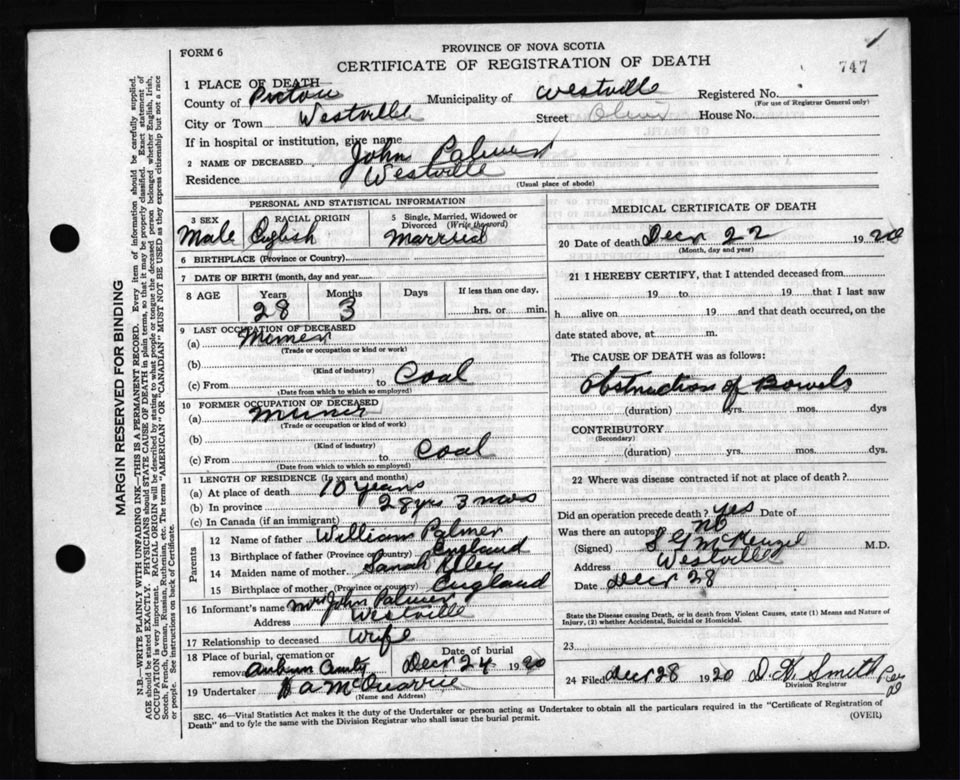 FORM 6
PROVINCE OF NOVA SCOTIA
CERTIFICATE OF REGISTRATION OF DEATH
747
1 PLACE OF DEATH
County of Pictou Municipality of Westville Registered No.
(For use of Registrar General only)
City or Town Westville Street House No.
If in hospital or institution, give name
2 NAME OF DECEASED John Palmer
Residence Westville
(Usual place of abode)
PERSONAL AND STATISTICAL INFORMATION
3 SEX RACIAL ORIGIN 5 Single, Married, Widowed or Divorced (Write the word)
Male English Married
6 BIRTHPLACE (Province or Country)
7 DATE OF BIRTH (month, day and year)
8 AGE Years Months Days If less than one day,
28 3 hrs. or min.
9 LAST OCCUPATION OF DECEASED
(a) Miner
(Trade or occupation or kind of work)
(b)
(Kind of industry)
(c) From to Coal
(Date from which to which so employed)
10 FORMER OCCUPATION OF DECEASED
(a) Miner
(Trade or occupation or kind of work)
(b)
(Kind of industry)
(c) From to Coal
(Date from which to which so employed)
11 LENGTH OF RESIDENCE (In years and months)
(a) At place of death 10 years
(b) In province 28 yrs 3 mos
(c) In Canada (if an immigrant)
Parents
12 Name of father William Palmer
13 Birthplace of father (Province or Country) England
14 Maiden name of mother Sarah
15 Birthplace of mother (Province or country) England
16 Informant's name Mrs John Palmer
Address Westville
17 Relationship to deceased Wife
18 Place of burial, cremation or removal Auburn Date of burial Decr 24 1920
19 Undertaker McQuarrie
(Name and Address)
MEDICAL CERTIFICATE OF DEATH
20 Date of death Decr 22 1920
(Month, day and year)
21 I HEREBY CERTIFY, that I attended deceased from
19 to 19 that I last saw
h alive on 19 and that death occurred, on the
date stated above, at m.
The CAUSE OF DEATH was as follows:
Obstruction of Bowels
(duration) yrs. mos. dys
CONTRIBUTORY
(Secondary)
(duration) yrs. mos. dys.
22 Where was disease contracted if not at place of death?
Did an operation precede death? yes Date of
Was there an autopsy no
(Signed) McKenzie M.D.
Address Westville
Date Decr 28
State the Disease causing Death, or in death from Violent Causes, state (1) Means and Nature of
Injury, (2) whether Accidental, Suicidal or Homicidal.
23
24 Filed Decr 28 1920 D. H. Smith
Division Registrar
SEC. 46—Vital Statistics Act makes it the duty of the Undertaker or person acting as Undertaker to obtain all the particulars required in the "Certificate of Registration of
Death" and to fyle the same with the Division Registrar who shall issue the burial permit.
(OVER)
MARGIN RESERVED FOR BINDING
N.B.—WRITE PLAINLY WITH UNFADING INK—THIS IS A PERMANENT RECORD. Every item of information should be carefully supplied.
AGE should be stated EXACTLY. PHYSICIANS should STATE CAUSE OF DEATH in plain terms, so that it may be properly classified. Exact statement of
OCCUPATION is very important. RACIAL ORIGIN will be described by stating to what people or tongue the deceased person belonged whether English, Irish,
Scotch, French, German, Russian, Ruthenian, etc. The terms "AMERICAN" OR "CANADIAN" MUST NOT BE USED as they express citizenship but not a race
or people. See instructions on back of Certificate.